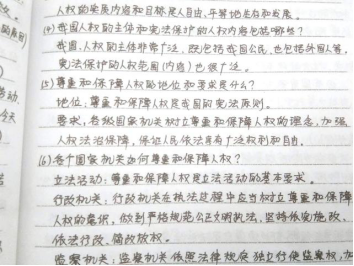 人权的实质内容和目标是人自由、平等地生存和发展。
(4)我国人权的主体和宪法保护的人权内容包括哪些?
我国,人权的主体非常广泛,既包括我国公民,也包括外国人等,
宪法保护的人权范围(内容)也很广泛。
(5)尊重和保障人权的地位和要求是什么?
地位:尊重和保障人权是我国的宪法原则。
要求:各级国家机关树立尊重和保障人权的理念,加强
人权法治保障,保证人民依法享有广泛权利和自由。
(6)各个国家机关如何尊重和保障人权?
立法活动:尊重和保障人权是立法活动的基本要求。
行政机关:行政机关在执法过程中应当树立尊重和保障
人权的意识,做到严格规范公正文明执法,坚持依宪施政、
依法行政、简政放权。
监察机关:监察机关依照法律规定独立行使监察权,加
今天